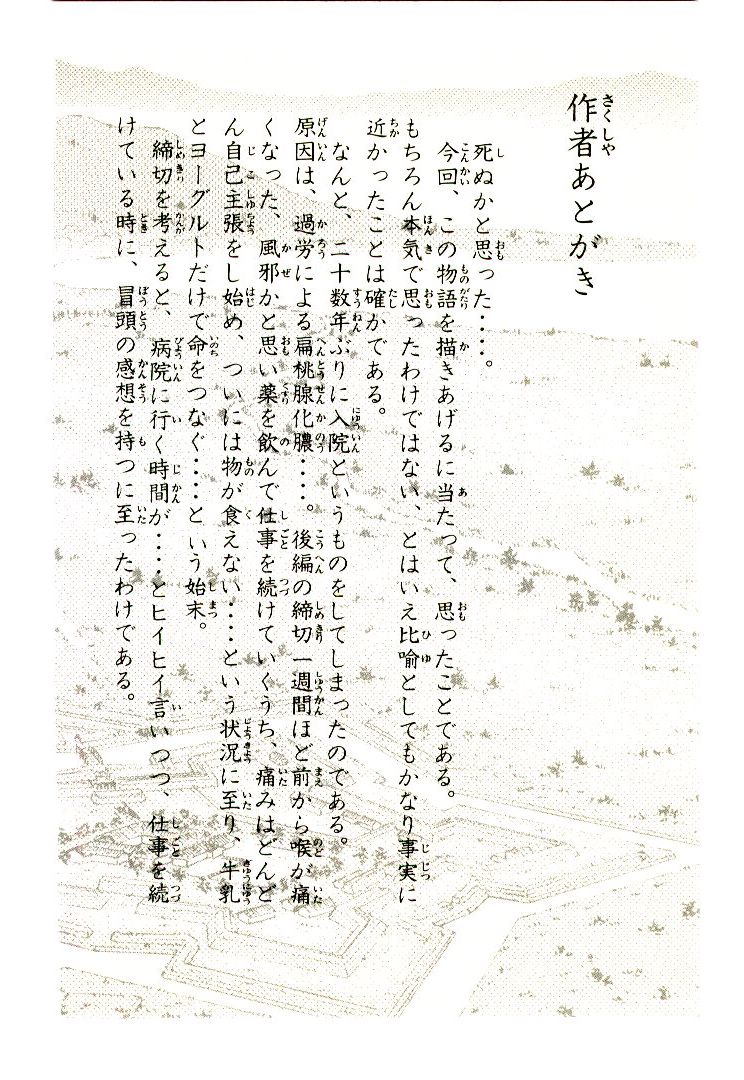 作者あとがき
死ぬかと思った‥‥。
今回、この物語を描きあげるに当たって、思ったことである。
もちろん本気で思ったわけではない、とはいえ比喩としてもかなり事実に
近かったことは確かである。
なんと、二十数年ぶりに入院というものをしてしまったのである。
原因は、過労による扁桃腺化膿‥‥。後編の締切一週間ほど前から喉が痛
くなった、風邪かと思い薬を飲んで仕事を続けていくうち、痛みはどんど
ん自己主張をし始め、ついには物が食えない‥‥という状況に至り、牛乳
とヨーグルトだけで命をつなぐ‥‥という始末。
締切を考えると、病院に行く時間が‥‥とヒイヒイ言いつつ、仕事を続
けている時に、冒頭の感想を持つに至ったわけである。